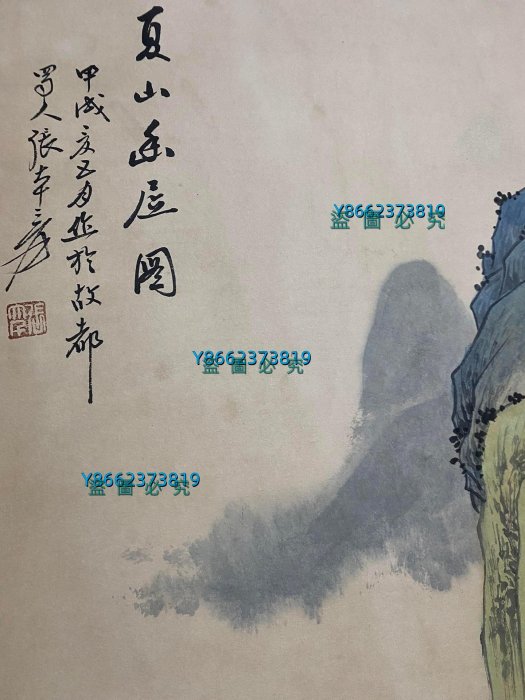 夏山幽居圖
甲戌夏五月作於故都
蜀人張大千爰
Y8662373819
盜圖必究
Y8662373819
盜圖必究
Y8662373819
盜圖必究